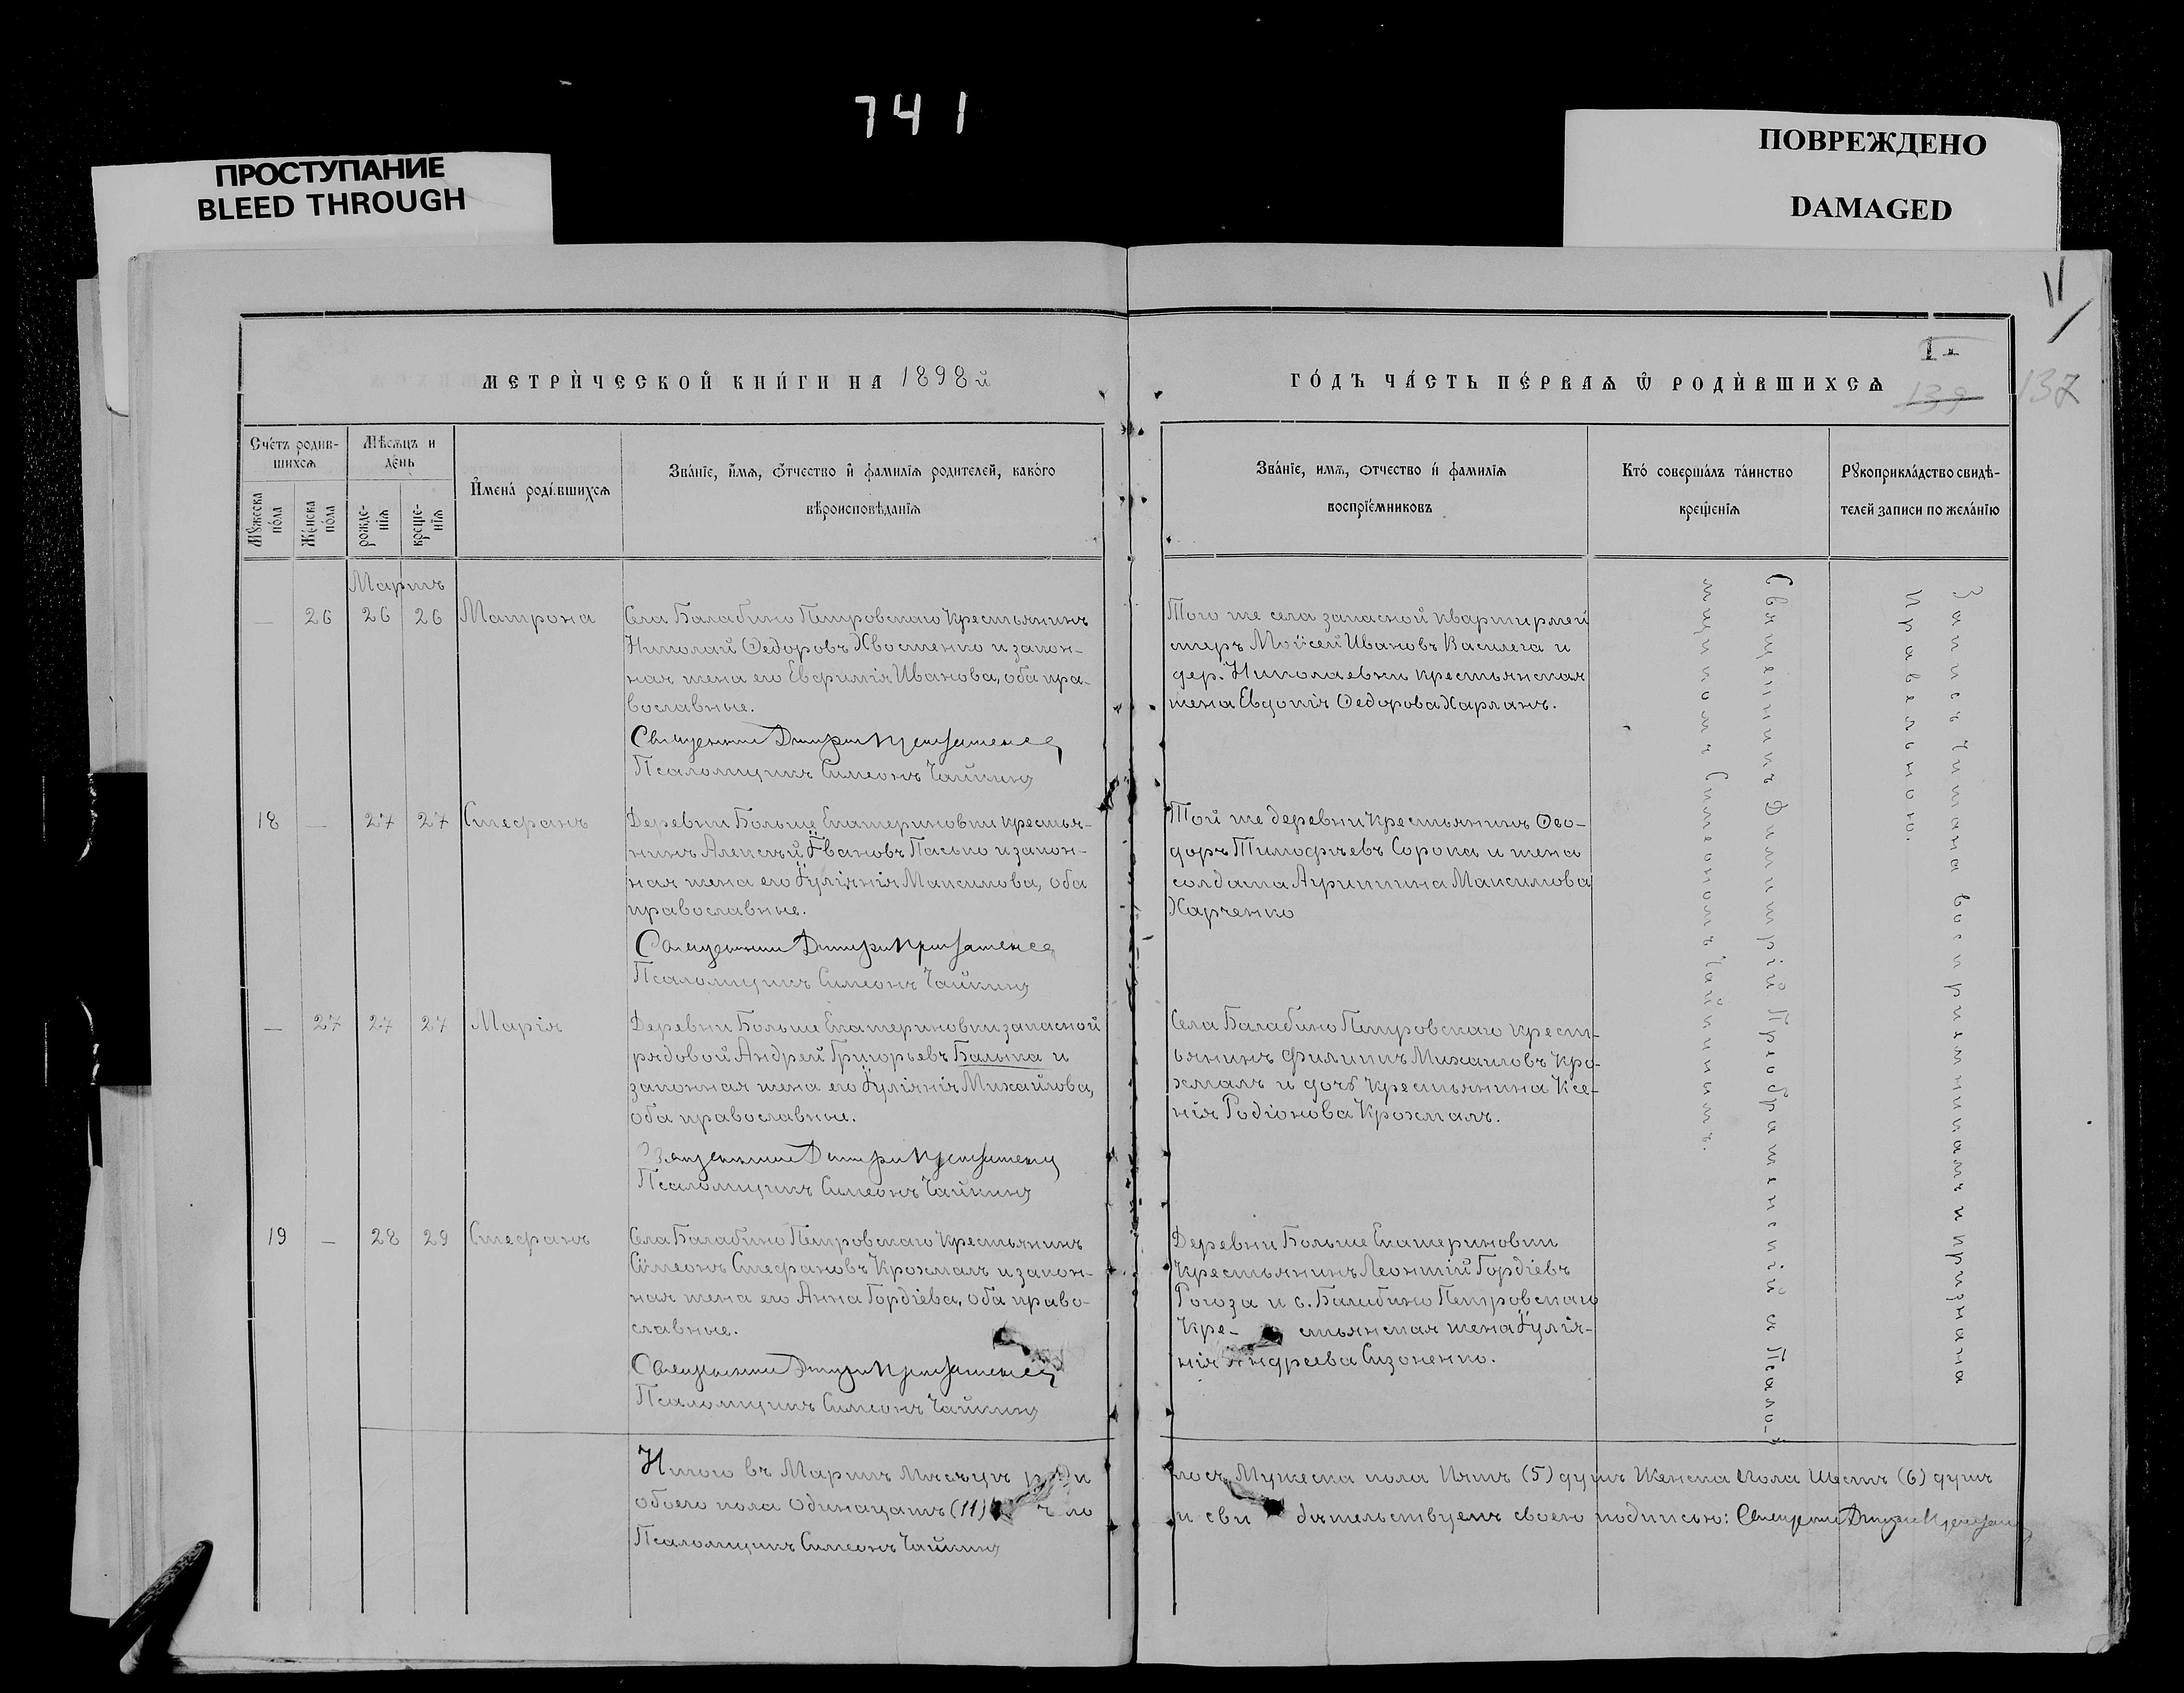 741
ПРОСТУПАНИЕ
BLEED THROUGH
ПОВРЕЖДЕНО
DAMAGED
МЕТРИ́ЧЕСКОЙ КНИ́ГИ НА 1898й
ГО́ДЪ ЧА́СТЬ ПЕ́РВАѦ Ѿ РОДИ́ВШИХСѦ
139 137
Сче́тъ родив-
шихсѧ
Мѣсѧцъ и
де́нь
Мꙋ́жеска
по́ла
Же́нска
по́ла
рожде-
нїѧ
креще-
нїѧ
И҆мена́ роди́вшихсѧ
Зва́нїе, и҆́мѧ, ѻ҆́тчество и҆ фамилїѧ родителей, како́го
вѣроисповѣданїѧ
Зва́нїе, имѧ, ѻтчество и҆ фамилїѧ
воспрїе́мниковъ
Кто́ соверша́лъ та́инство
креще́нїѧ
Рꙋкоприкла́дство свидѣ-
телей записи по жела́нїю
Мартъ
— 26 26 26 Матрона
Села Балабино Петровскаго крестьянинъ
Николай Ѳедоровъ Хвостенко и закон-
ная жена его Евфимія Иванова, оба пра-
вославные.
Священникъ Димитрій Преображенскій
Псаломщикъ Симеонъ Чайкинъ
Того же села запасной квартирмей
стеръ Моѵсей Ивановъ Василега и
дер. Николаевки крестьянская
жена Евдокія Ѳедорова Харланъ.
18 — 27 27 Стефанъ
Деревни Больше Екатериновки крестья-
нинъ Алексѣй Ївановъ Пасько и закон-
ная жена его Їуліянія Максимова, оба
православные.
Священникъ Димитрій Преображенскій
Псаломщикъ Симеонъ Чайкинъ
Той же деревни крестьянинъ Ѳео-
доръ Тимофѣевъ Сорока и жена
солдата Агриппина Максимова
Харченко
— 27 27 27 Марія
Деревни Больше Екатериновки запасной
рядовой Андрей Григорьевъ Балыка и
законная жена его Їуліянія Михайлова,
оба православные.
Священникъ Димитрій Преображенскій
Псаломщикъ Симеонъ Чайкинъ
Села Балабино Петровскаго крест-
ьянинъ Филиппъ Михаиловъ Кро-
хмаль и дочь крестьянина Ксе-
нія Родіонова Крохмаль.
19 — 28 29 Стефанъ
Села Балабино Петровскаго крестьянинъ
Сѵмеонъ Стефановъ Крохмаль и закон-
ная жена его Анна Гордіева, оба право-
славные.
Священникъ Димитрій Преображенскій
Псаломщикъ Симеонъ Чайкинъ
Деревни Больше Екатериновки
Крестьянинъ Леонтій Гордіевъ
Рогоза и с. Балабино Петровскаго
Кре- стьянская жена Їулія-
нія Андреева Сизоненко.
Священникъ Димитрій Преображенскій съ Псало-
мщикомъ Симеономъ Чайкинымъ.
Запись читана воспріемникамъ и признана
правельною.
Итого въ Мартѣ мѣсяцѣ роди
лось Мужеска пола Пять (5) душъ Женска пола Шесть (6) душъ
обоего пола одинацать (11)
и сви дѣтельствуемъ своею подписью: Священникъ Димитрій
Псаломщикъ Симеонъ Чайкинъ